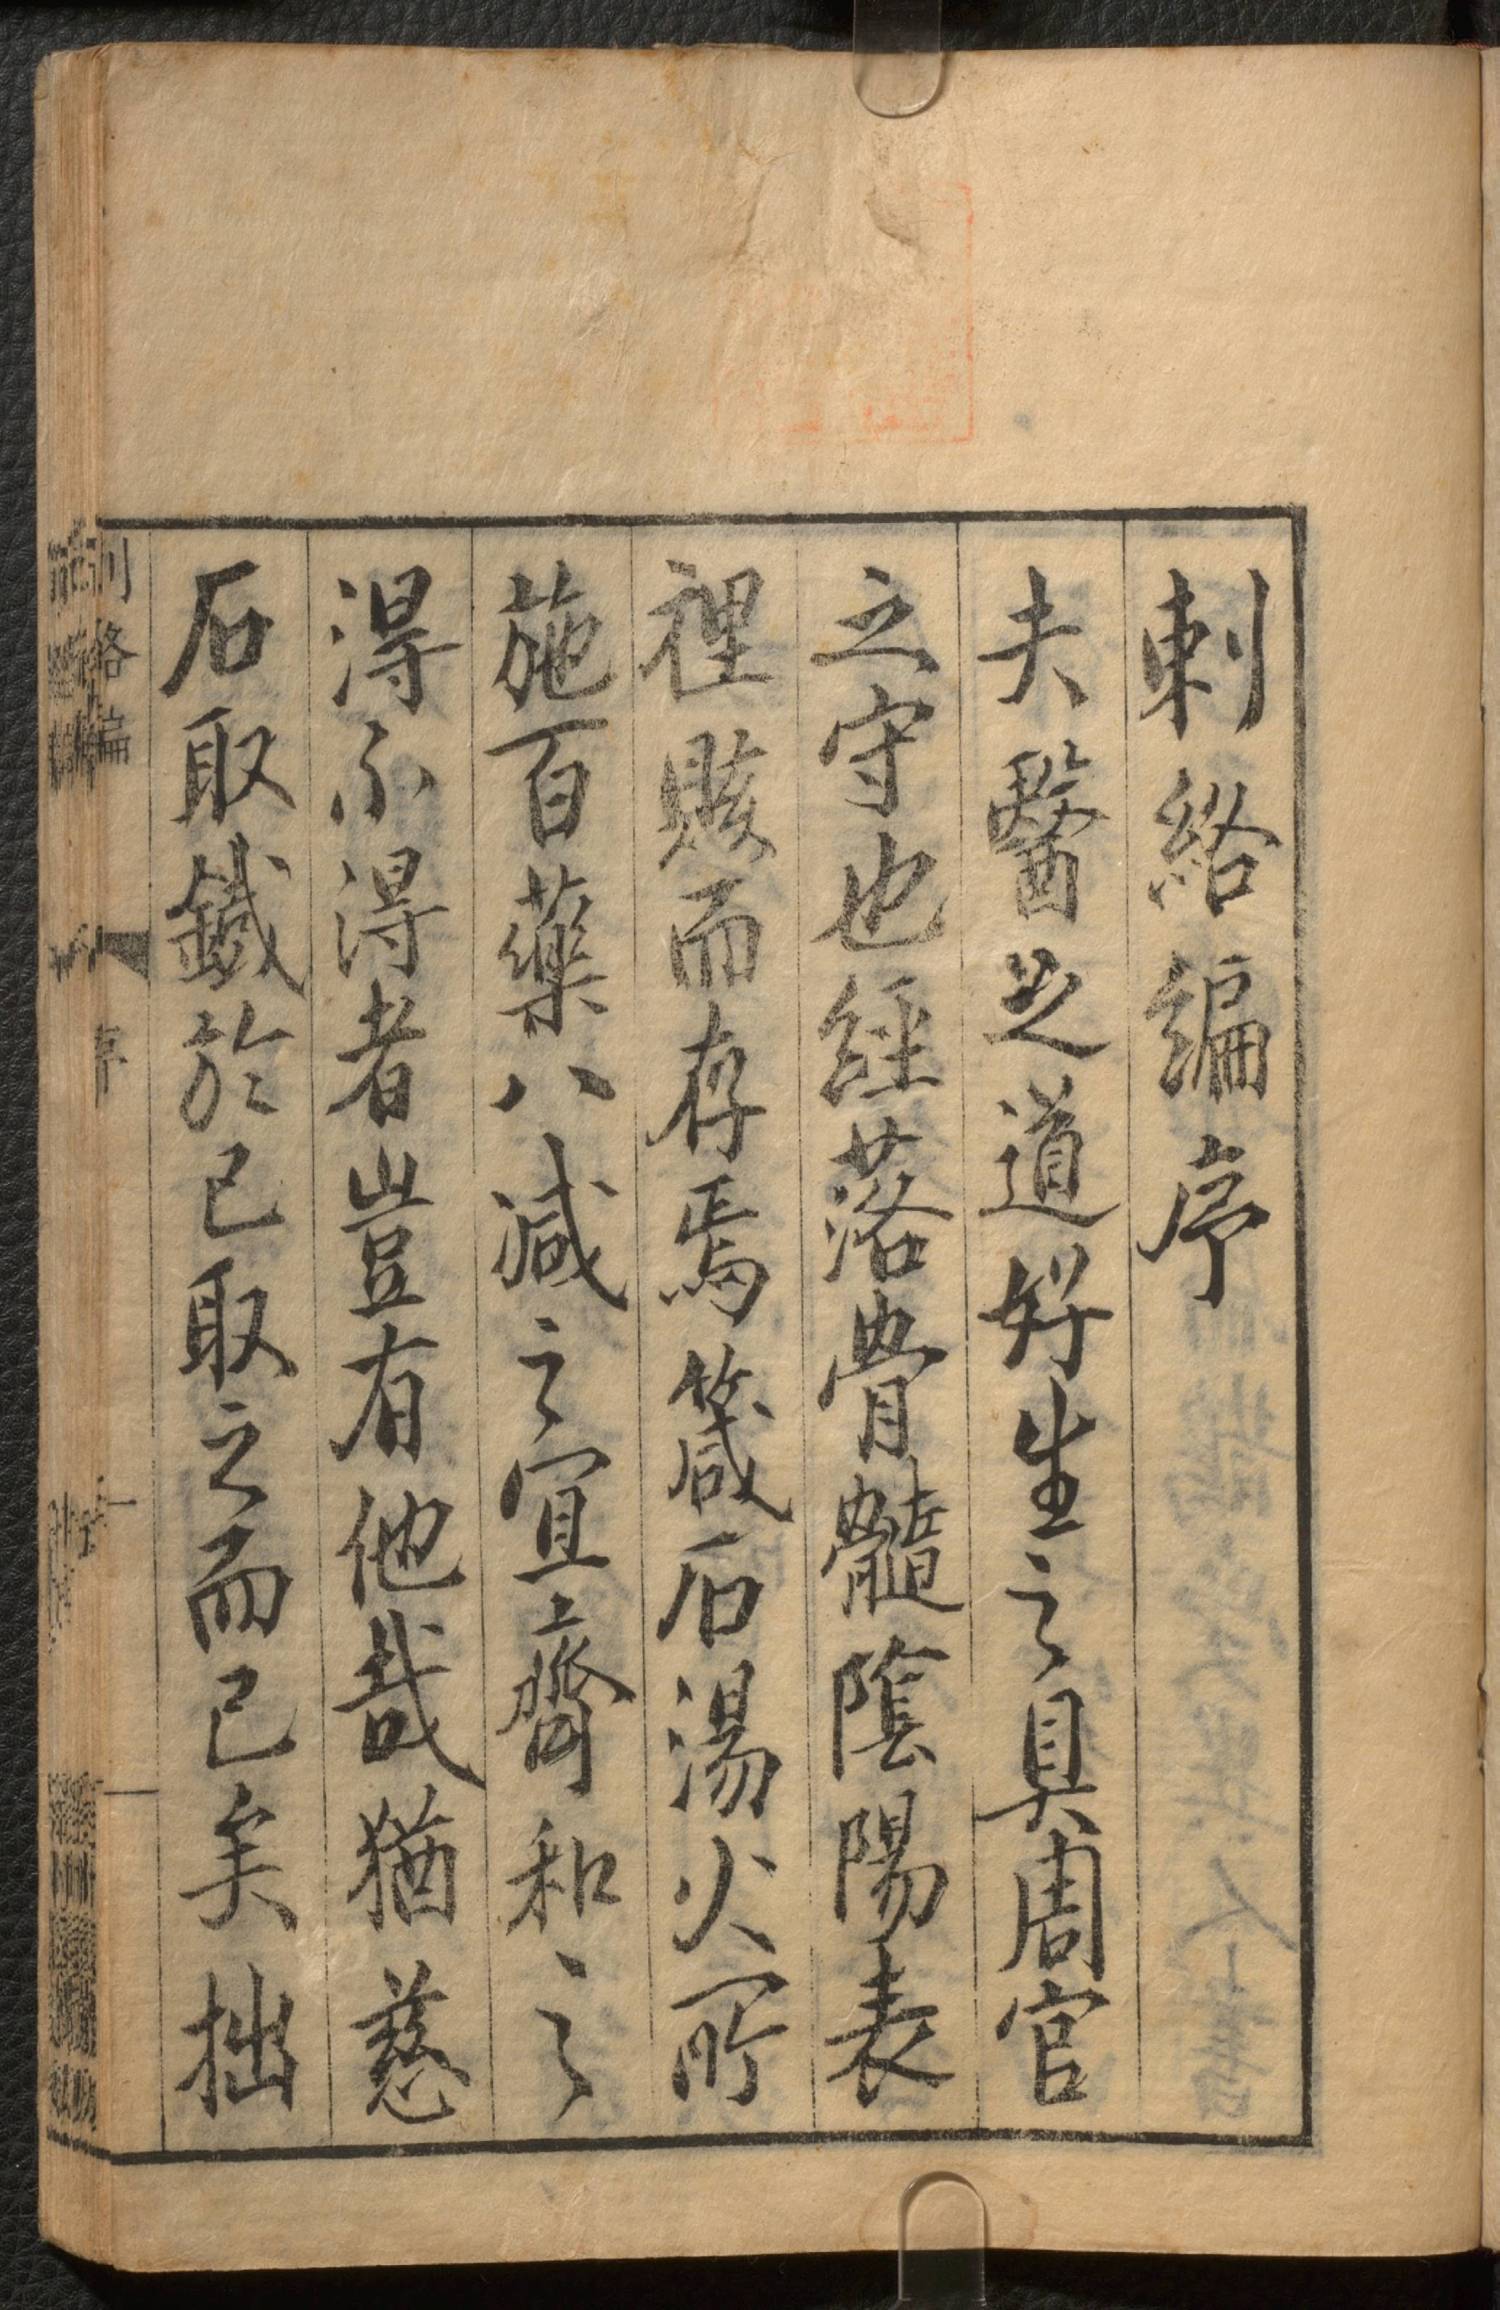 刺絡編序
夫醫之道好生之具周官
之守也經落骨髓陰陽表
裡賅而存焉箴石湯火所
施百藥八减之宜齊和之
得不得者豈有他哉猶慈
石取鐵於己取之而已矣拙
刺絡編
序
一